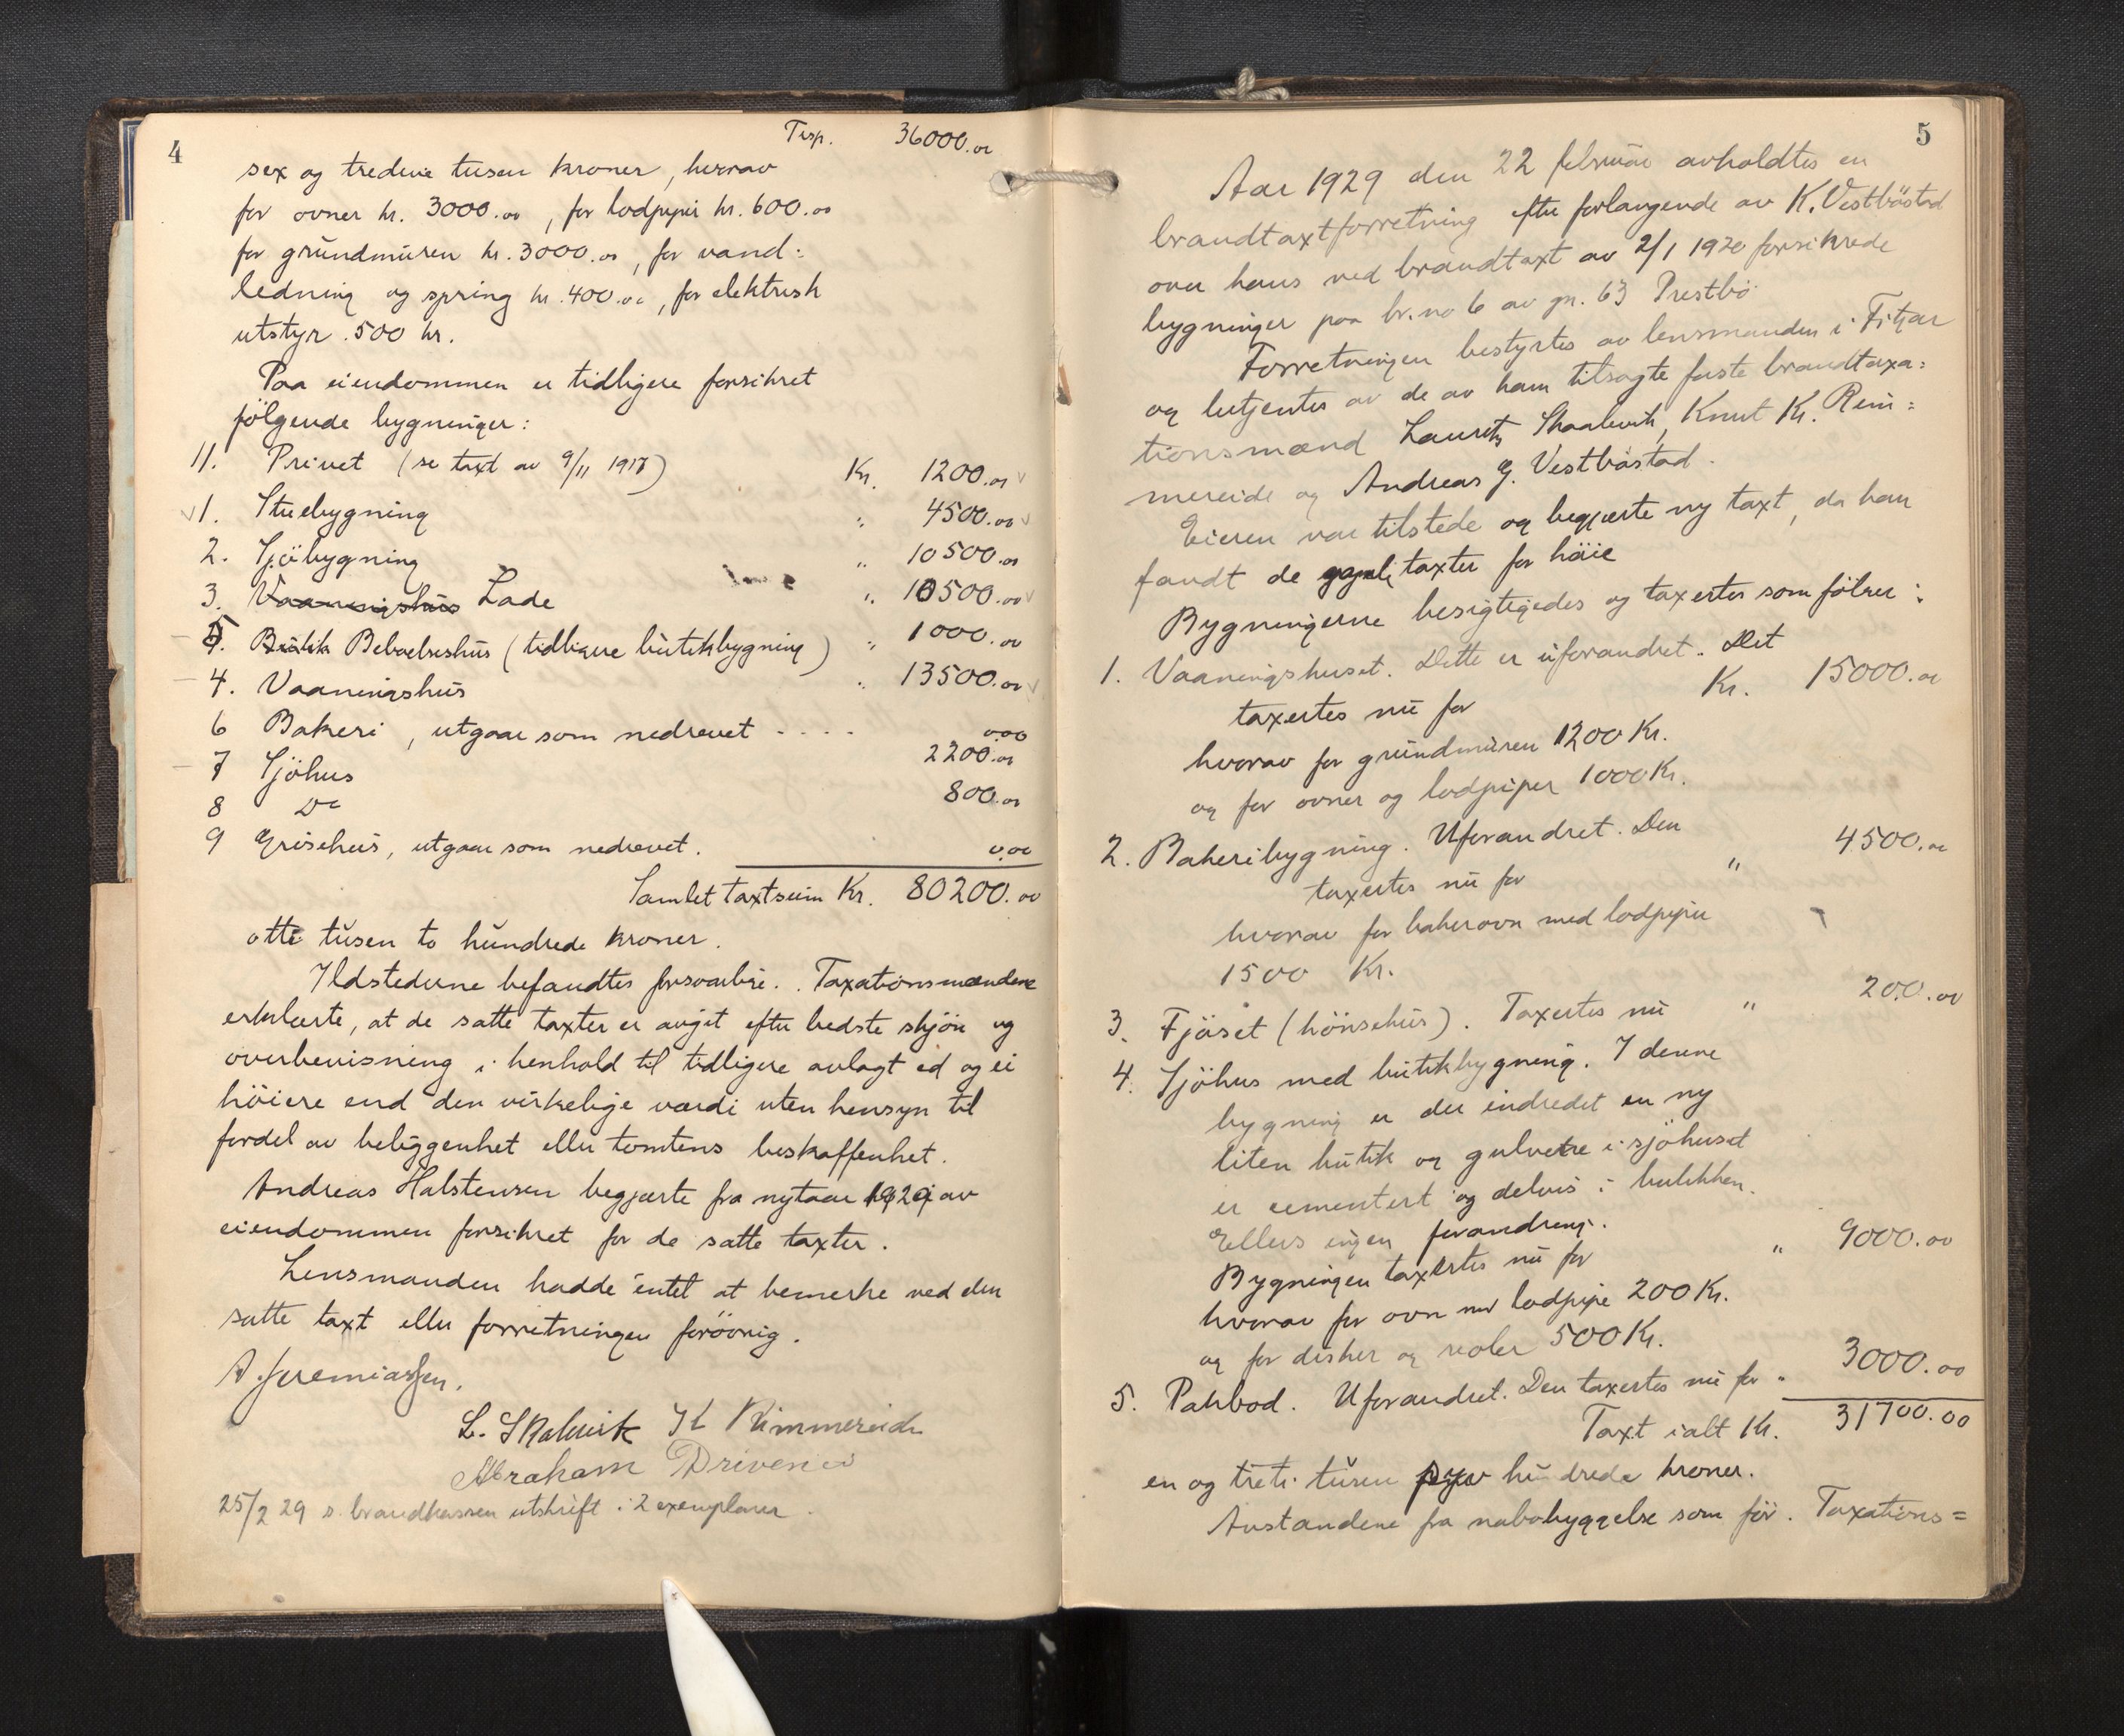 4
Tsp. 36000.00
sex og tredive tusen kroner, herav
for ovner kr. 3000.00, for lodpiper kr. 600.00
for grundmuren kr. 3000.00, for vand:
ledning og spring kr. 400.00, for elektrisk
utstyr 500 kr.
Paa eiendommen er tidligere forsikret
følgende bygninger:
11. Privet (se taxt av 9/11 1917) Kr. 1200.00
1. Stuebygning " 4500.00
2. Sjöbygning " 10500.00
3. Vaaningshus Lade " 10500.00
5. Butik Beboelseshus (tidligere butikbygning) " 1000.00
4. Vaaningshus " 13500.00
6 Bakeri, utgaar som nedrevet - - - - 0.00
7 Sjöhus 2200.00
8 Do 800.00
9 Grisehus, utgaar som nedrevet. 0.00
Samlet taxtsum Kr. 80200.00
otti tusen to hundrede kroner.
Ildstederne befandtes forsvarlige. Taxationsmændene
erklærte, at de satte taxter er avgit efter bedste skjön og
overbevisning i henhold til tidligere avlagt ed og ei
höiere end den virkelige værdi uten hensyn til
fordel av beliggenhet eller tomtens beskaffenhet.
Andreas Halstensen begjærte fra nytaar 1929 av
eiendommen forsikret for de satte taxter.
Lensmanden hadde intet at bemerke ved den
satte taxt eller forretningen forövrig.
A. Jeremiassen.
L. Skalevik K Rimmereide
Abraham Drivenes
25/2 29 s. brandkassen utskrift i 2 exemplarer.
5
Aar 1929 den 22 februar avholdtes en
brandtaxtforretning efter forlangende av K. Vestbøstad
over hans ved brandtaxt av 2/1 1920 forsikrede
bygninger paa br.no 6 av gn. 63 Prestbö
Forretningen bestyrtes av lensmanden i Fitjar
og betjentes av de av ham tilsagte faste brandtaxa:
tionsmænd Lauritz Skaalevik, Knut Kr. Rim:
mereide og Andreas G. Vestbøstad.
Eieren var tilstede og begjærte ny taxt, da han
fandt de gamle taxter for höie
Bygningerne besigtigedes og taxertes som fölger:
1. Vaaningshuset. Dette er uforandret. Det
taxertes nu for Kr. 15000.00
hvorav for grundmuren 1200 Kr.
og for ovner og lodpiper 1000 Kr.
2. Bakeribygning. Uforandret. Den
taxertes nu for " 4500.00
hvorav for bakerovn med lodpipe
1500 Kr.
3. Fjöset (hönsehus). Taxertes nu " 200.00
4. Sjöhus med butikbygning. I denne
bygning er der indredet en ny
liten butik og gulvene i sjöhuset
er cementert og delvis i butikken.
Ellers ingen forandring.
Bygningen taxertes nu for " 9000.00
hvorav for ovn med lodpipe 200 Kr.
og for disker og reoler 500 Kr.
5. Pakbod. Uforandret. Den taxertes nu for " 3000.00
Taxt ialt Kr. 31700.00
en og treti tusen syv hundrede kroner.
Avstandene fra nabobyggelse som för. Taxations=